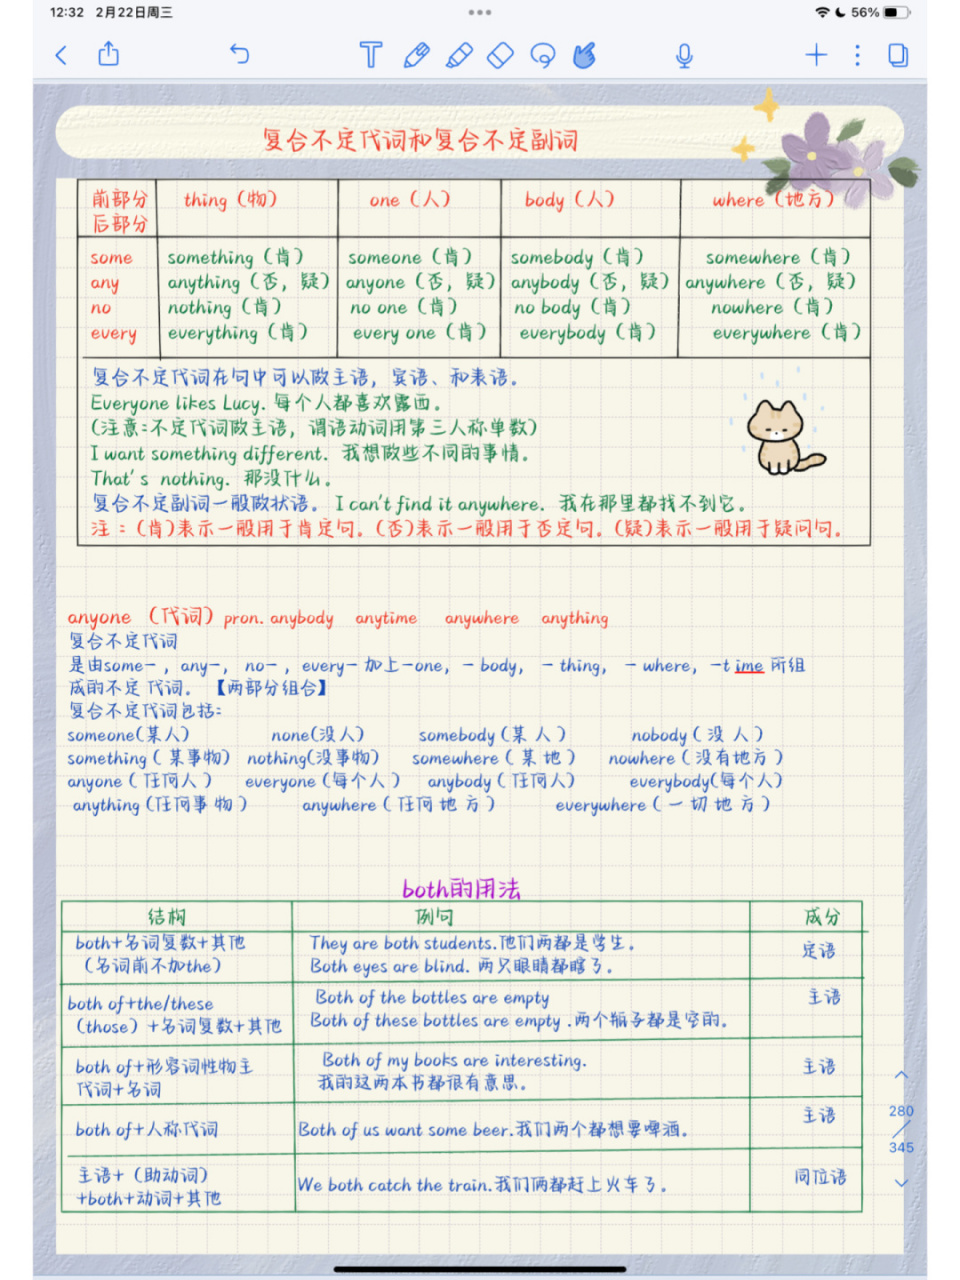 12:32 2月22日周三
56%
复合不定代词和复合不定副词
前部分 thing（物） one（人） body（人） where（地方）
后部分
some something（肯） someone（肯） somebody（肯） somewhere（肯）
any anything（否，疑） anyone（否，疑） anybody（否，疑） anywhere（否，疑）
no nothing（肯） no one（肯） no body（肯） nowhere（肯）
every everything（肯） every one（肯） everybody（肯） everywhere（肯）
复合不定代词在句中可以做主语，宾语、和表语。
Everyone likes Lucy. 每个人都喜欢露西。
(注意:不定代词做主语，谓语动词用第三人称单数)
I want something different. 我想做些不同的事情。
That's nothing. 那没什么。
复合不定副词一般做状语。 I can't find it anywhere. 我在那里都找不到它。
注：(肯)表示一般用于肯定句。(否)表示一般用于否定句。(疑)表示一般用于疑问句。
anyone （代词）pron. anybody anytime anywhere anything
复合不定代词
是由some-，any-，no-，every-加上-one，-body，-thing，-where，-t ime 所组
成的不定 代词。【两部分组合】
复合不定代词包括:
someone(某人) none(没人) somebody(某人) nobody(没人)
something(某事物) nothing(没事物) somewhere(某地) nowhere(没有地方)
anyone(任何人) everyone(每个人) anybody(任何人) everybody(每个人)
anything(任何事物) anywhere(任何地方) everywhere(一切地方)
both的用法
结构 例句 成分
both+名词复数+其他 They are both students.他们两都是学生。 定语
（名词前不加the） Both eyes are blind. 两只眼睛都瞎了。
both of+the/these Both of the bottles are empty 主语
（those）+名词复数+其他 Both of these bottles are empty .两个瓶子都是空的。
both of+形容词性物主 Both of my books are interesting. 主语
代词+名词 我的这两本书都很有意思。
both of+人称代词 Both of us want some beer.我们两个都想要啤酒。 主语
主语+（助动词） We both catch the train.我们俩都赶上火车了。 同位语
+both+动词+其他
280
345